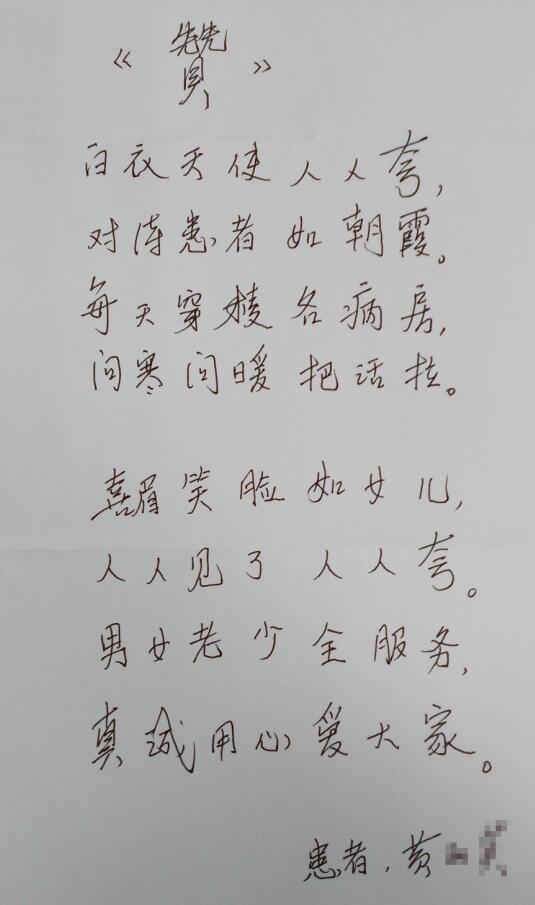 《赞》
白衣天使人人夸，
对待患者如朝霞。
每天穿梭各病房，
问寒问暖把话拉。
喜眉笑脸如女儿，
人人见了人人夸。
男女老少全服务，
真诚用心爱大家。
患者，黄